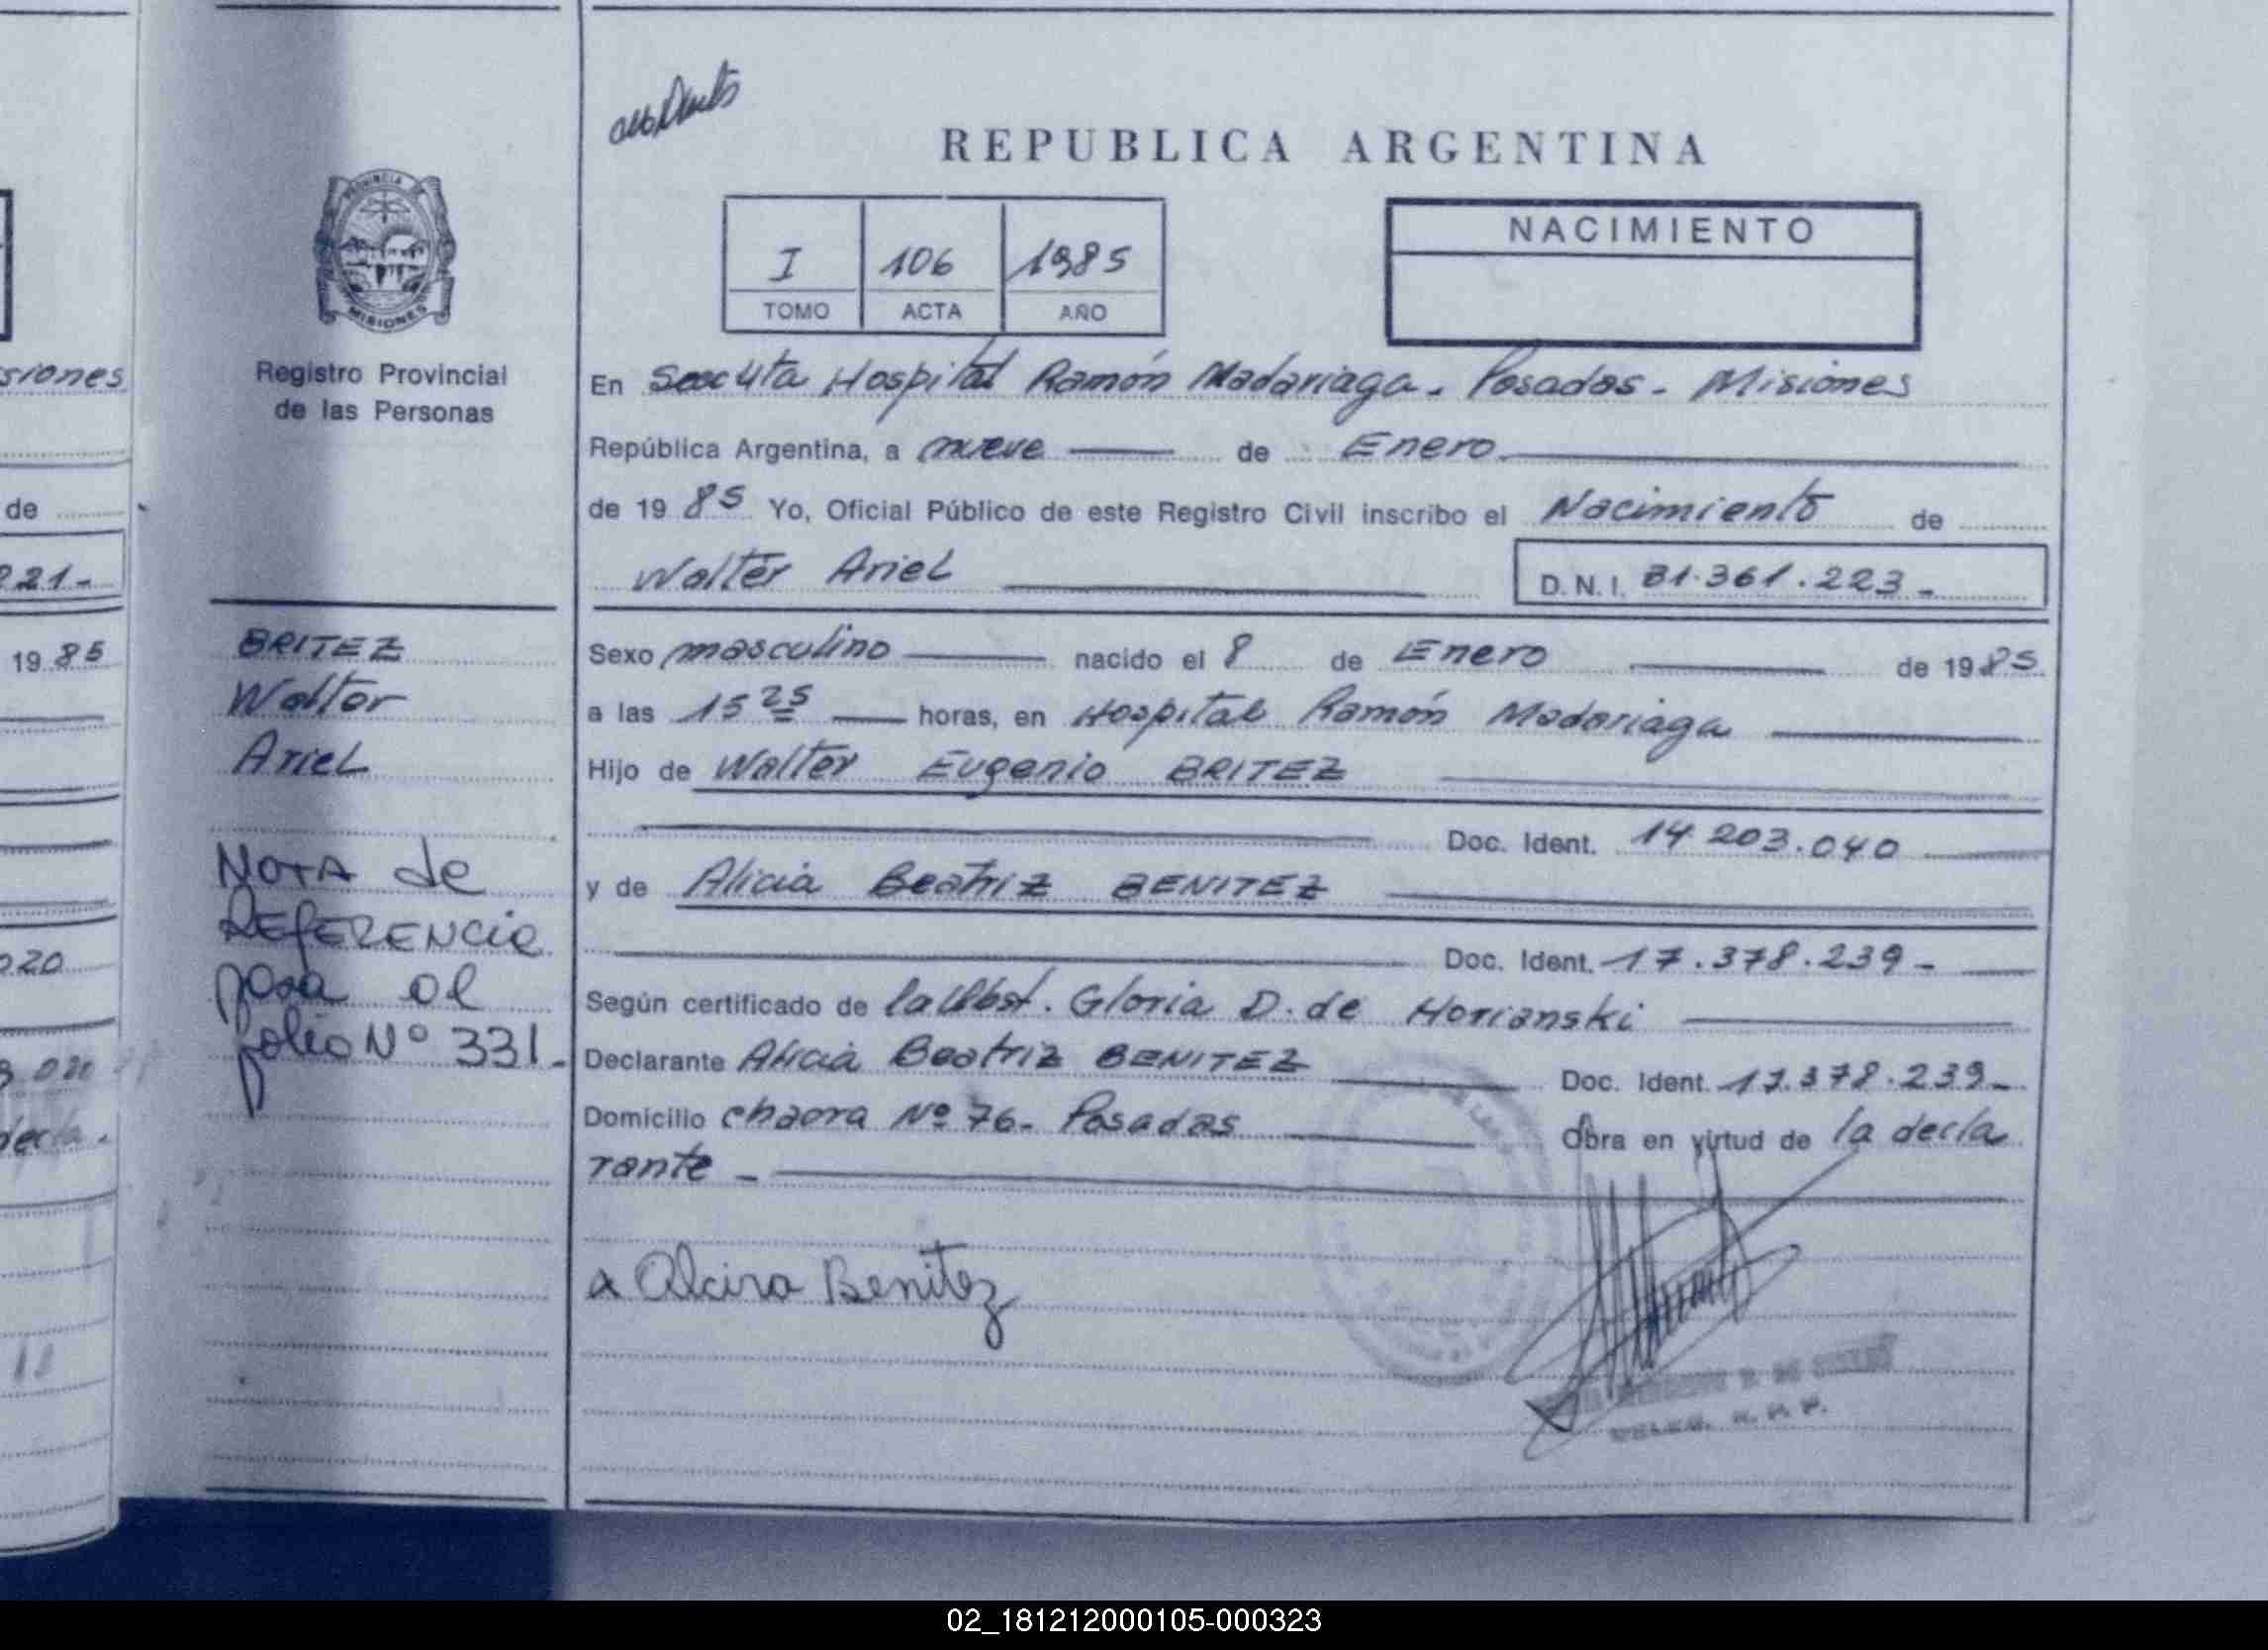 REPUBLICA ARGENTINA
NACIMIENTO
I 106 1985
TOMO ACTA AÑO
PROVINCIA DE
MISIONES
Registro Provincial
de las Personas
En Hospital Ramón Madariaga. Posadas - Misiones
República Argentina, a nueve de Enero
de 1985 Yo, Oficial Público de este Registro Civil inscribo el Nacimiento de
Walter Ariel D.N.I. 31.361.223-
BRITEZ
Walter
Ariel
NOTA de
REFERENCIA
para el
folio Nº 331-
Sexo masculino nacido el 8 de Enero de 1985
a las 15 25 horas, en Hospital Ramón Madariaga
Hijo de Walter Eugenio BRITEZ
Doc. Ident. 14.203.040
y de Alicia Beatriz BENITEZ
Doc. Ident. 17.378.239-
Según certificado de la Obst. Gloria D. de Horianski
Declarante Alicia Beatriz BENITEZ Doc. Ident. 17.378.239-
Domicilio chacra Nº 76- Posadas Obra en virtud de la decla
rante -
Alcira Benitez
siones
de
221-
1985
020
020
decla.
02_181212000105-000323